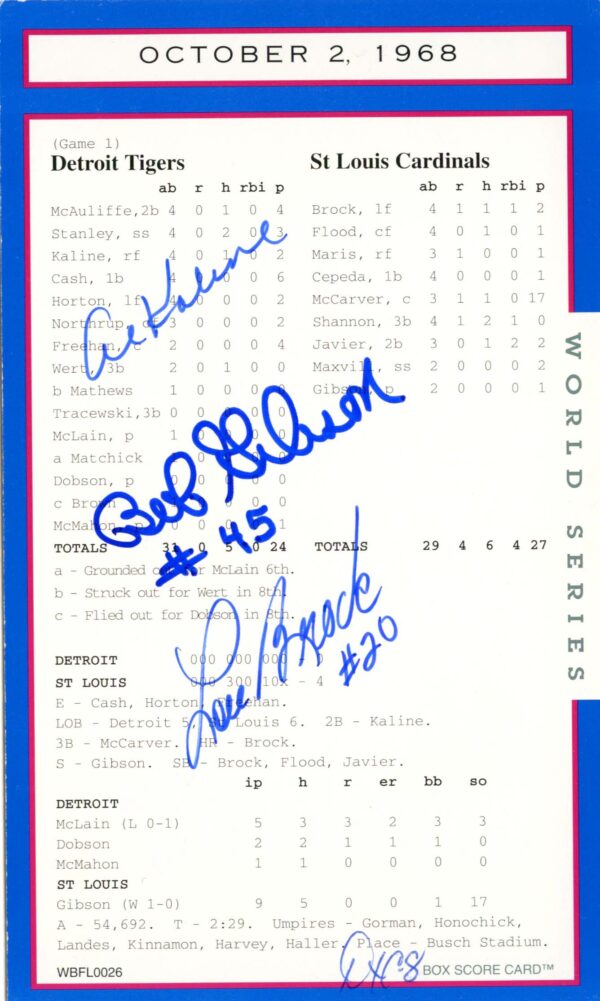 OCTOBER 2, 1968
(Game 1)
Detroit Tigers
ab r h rbi p
McAuliffe,2b 4 0 1 0 4
Stanley, ss 4 0 2 0 3
Kaline, rf 4 0 1 0 2
Cash, 1b 4 0 0 0 6
Horton, lf 4 0 0 0 2
Northrup, cf 3 0 0 0 2
Freehan, c 2 0 0 0 4
Wert, 3b 2 0 1 0 0
b Mathews 1 0 0 0 0
Tracewski,3b 0 0 0 0 0
McLain, p 1 0 0 0 0
a Matchick 1 0 0 0 0
Dobson, p 0 0 0 0 0
c Brown 1 0 0 0 0
McMahon, p 0 0 0 0 1
TOTALS 31 0 5 0 24
St Louis Cardinals
ab r h rbi p
Brock, lf 4 1 1 1 2
Flood, cf 4 0 1 0 1
Maris, rf 3 1 0 0 1
Cepeda, 1b 4 0 0 0 1
McCarver, c 3 1 1 0 17
Shannon, 3b 4 1 2 1 0
Javier, 2b 3 0 1 2 2
Maxvill, ss 2 0 0 0 2
Gibson, p 2 0 0 0 1
TOTALS 29 4 6 4 27
Al Kaline
Bob Gibson
# 45
Lou Brock
#20
a - Grounded out for McLain 6th.
b - Struck out for Wert in 8th.
c - Flied out for Dobson in 8th.
DETROIT 000 000 000 - 0
ST LOUIS 000 300 10x - 4
E - Cash, Horton, Freehan.
LOB - Detroit 5, St Louis 6. 2B - Kaline.
3B - McCarver. HR - Brock.
S - Gibson. SB - Brock, Flood, Javier.
ip h r er bb so
DETROIT
McLain (L 0-1) 5 3 3 2 3 3
Dobson 2 2 1 1 1 0
McMahon 1 1 0 0 0 0
ST LOUIS
Gibson (W 1-0) 9 5 0 0 1 17
A - 54,692. T - 2:29. Umpires - Gorman, Honochick,
Landes, Kinnamon, Harvey, Haller. Place - Busch Stadium.
WBFL0026
BOX SCORE CARD™
WORLD SERIES